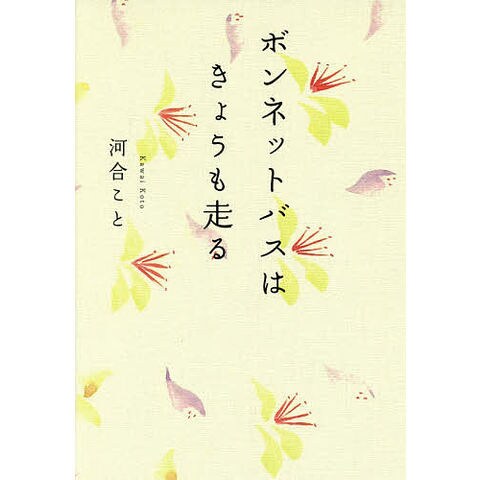 ボンネットバスは
きょうも走る
河合こと
Kawai Koto